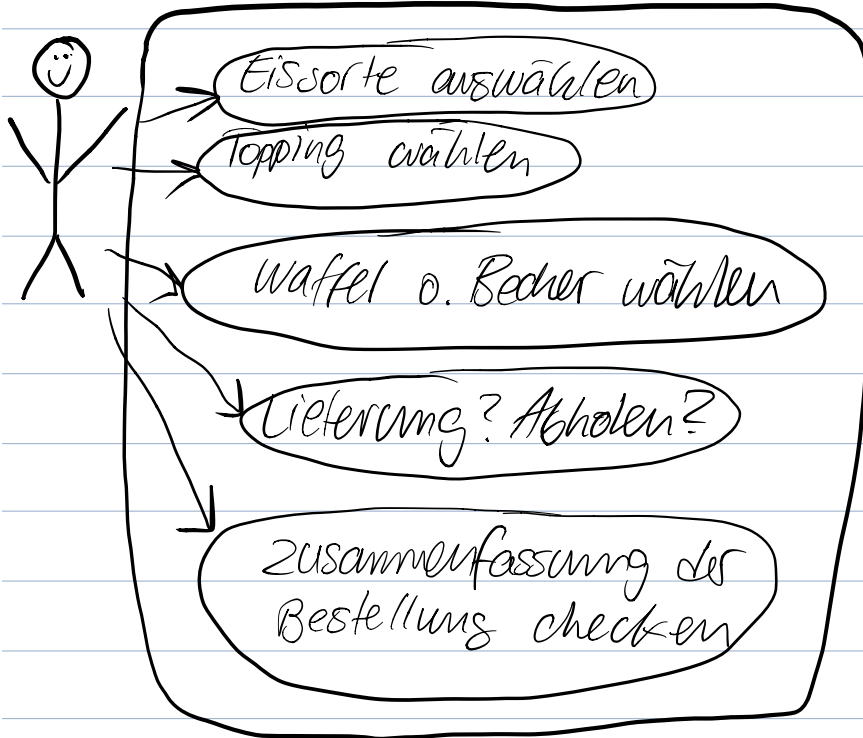 Eissorte auswählen
Topping wählen
Waffel o. Becher wählen
Lieferung? Abholen?
Zusammenfassung der
Bestellung checken